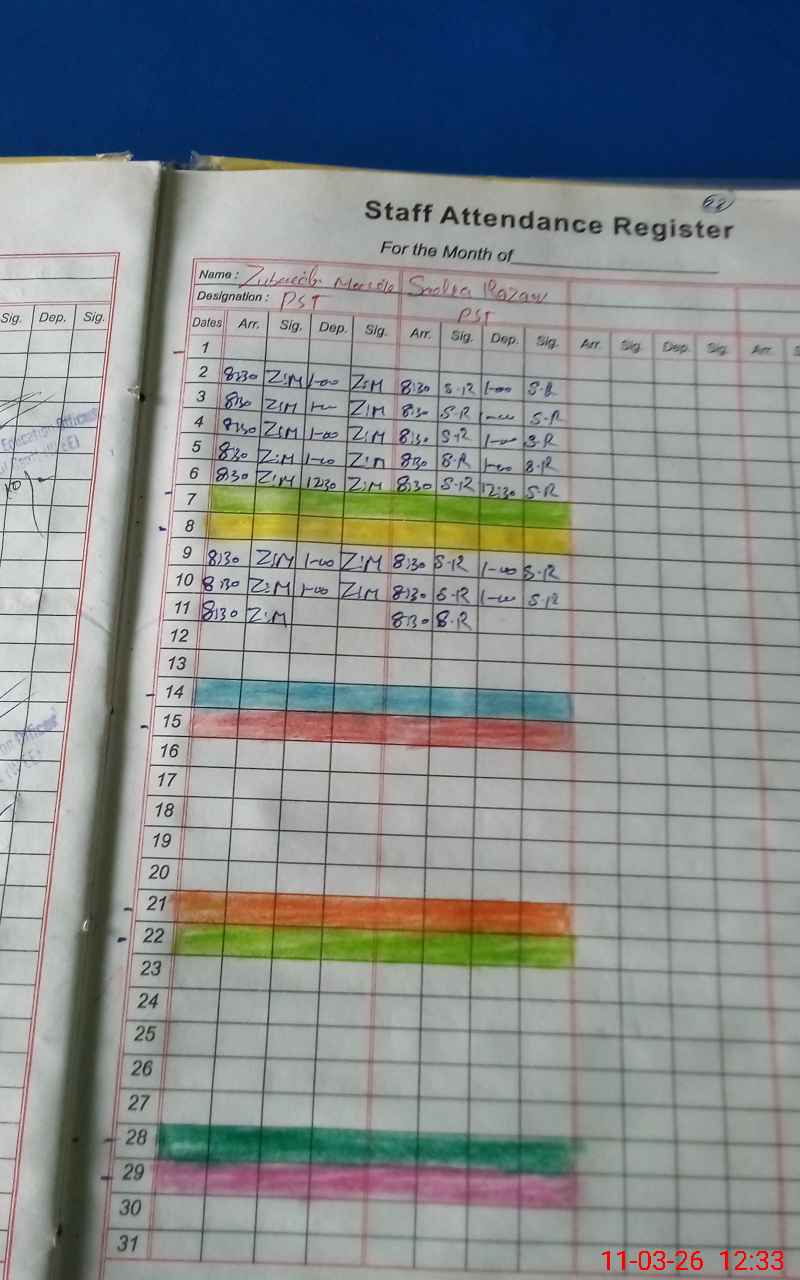 62
Staff Attendance Register
For the Month of
Name :
Designation : PST PST
Sig. Dep. Sig.
Dates Arr. Sig. Dep. Sig. Arr. Sig. Dep. Sig. Arr. Sig. Dep. Sig. Arr.
1
2 8:30 Z:M 1-00 Z:M 8:30 S-R 1-00 S-R
3 8:30 Z:M 1-00 Z:M 8:30 S-R 1-00 S-R
4 8:30 Z:M 1-00 Z:M 8:30 S-R 1-00 S-R
5 8:30 Z:M 1-00 Z:M 8:30 S-R 1-00 S-R
6 8:30 Z:M 12:30 Z:M 8:30 S-R 12:30 S-R
7
8
9 8:30 Z:M 1-00 Z:M 8:30 S-R 1-00 S-R
10 8:30 Z:M 1-00 Z:M 8:30 S-R 1-00 S-R
11 8:30 Z:M 8:30 S-R
12
13
14
15
16
17
18
19
20
21
22
23
24
25
26
27
28
29
30
31
11-03-26 12:33